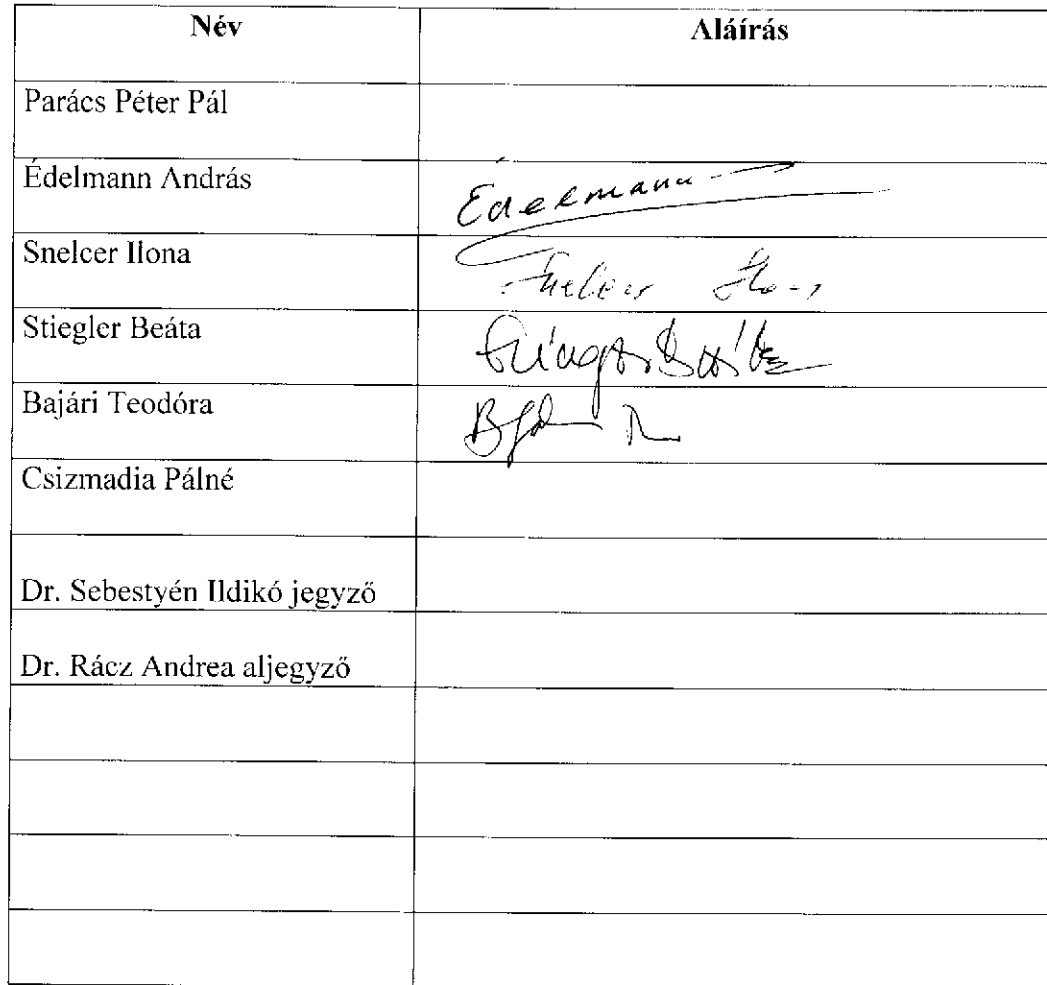 Név Aláírás
Parács Péter Pál
Édelmann András Édelmann
Snelcer Ilona Snelcer Ilona
Stiegler Beáta
Bajári Teodóra
Csizmadia Pálné
Dr. Sebestyén Ildikó jegyző
Dr. Rácz Andrea aljegyző